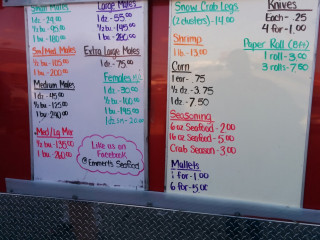 Small Males
1 dz - 24.00
½ bu - 95.00
1 bu - 180.00
Sm/Med Males
½ bu - 105.00
1 bu - 200.00
Medium Males
1 dz - 45.00
½ bu - 125.00
1 bu - 240.00
Med/Lg Mix
½ bu - 135.00
1 bu - 260.00
Large Males
1 dz - 55.00
½ bu - 145.00
1 bu - 280.00
Extra Large Males
1 dz - 75.00
Females
1 dz - 30.00
½ bu - 100.00
1 bu - 195.00
Like us on
Facebook
@ Emmerts Seafood
Snow Crab Legs
(2 clusters) - 14.00
Shrimp
1 lb. - 13.00
Corn
1 ear - .75
½ dz - 3.75
1 dz - 7.50
Seasoning
6 oz Seafood - 2.00
16 oz Seafood - 5.00
Crab Season - 3.00
Mallets
1 for - 1.00
6 for - 5.00
Knives
Each - .25
4 for - 1.00
Paper Roll (8ft)
1 roll - 3.00
3 rolls - 7.50